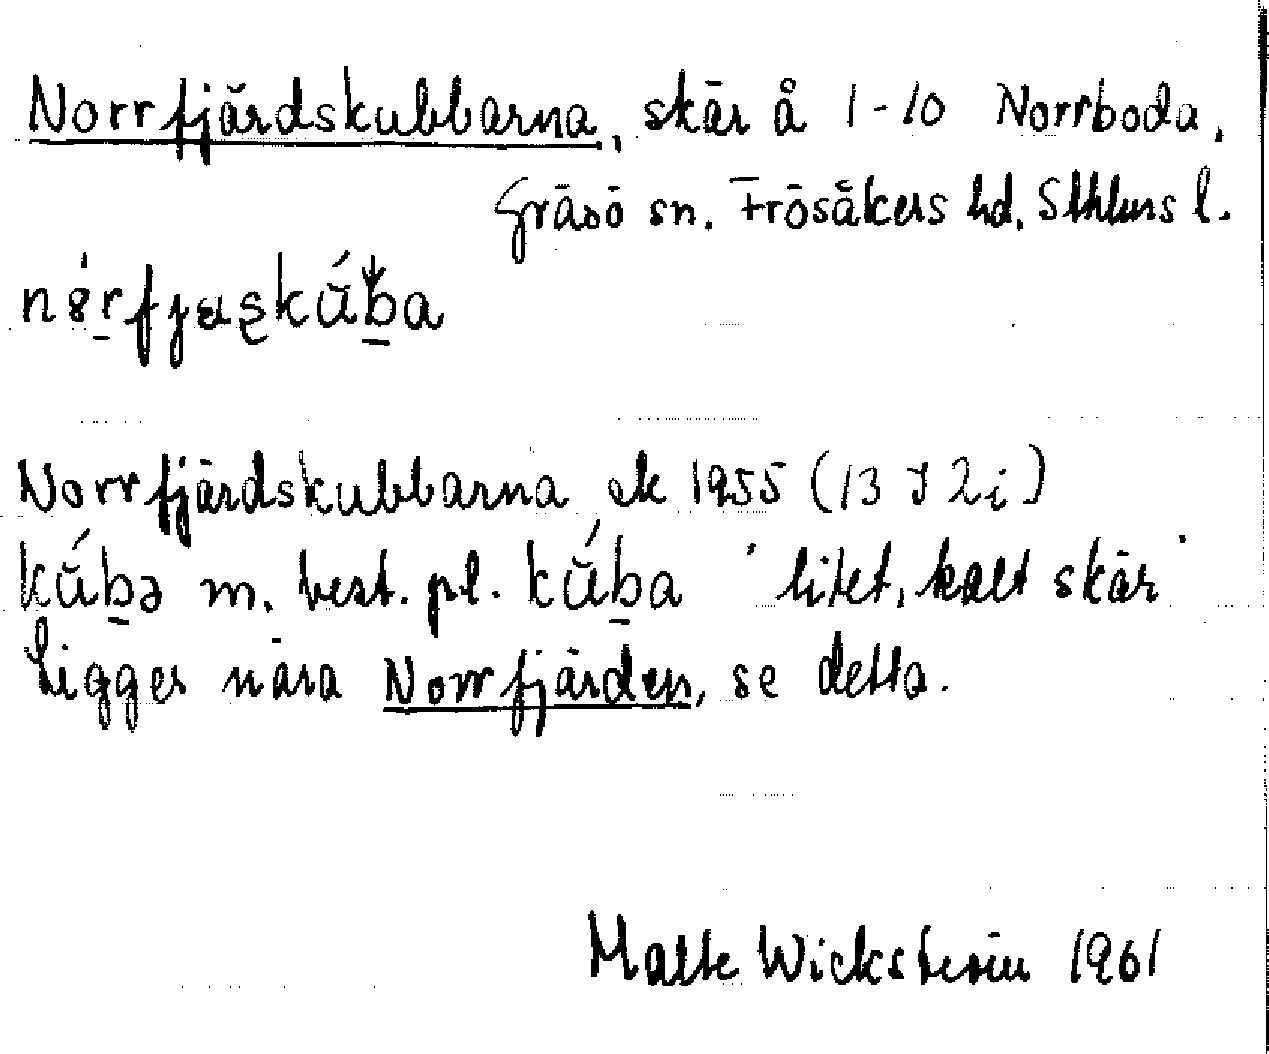 Norrfjärdskubbarna, skär å 1-10 Norrboda,
Gräsö sn. Frösåkers hd. Sthlms l.
Norrfjärdskubbarna ek 1955 (13 J 2i)
kúbə m. best. pl. kúba 'litet, kalt skär'
Ligger nära Norrfjärden, se detta.
Malte Wickström 1961